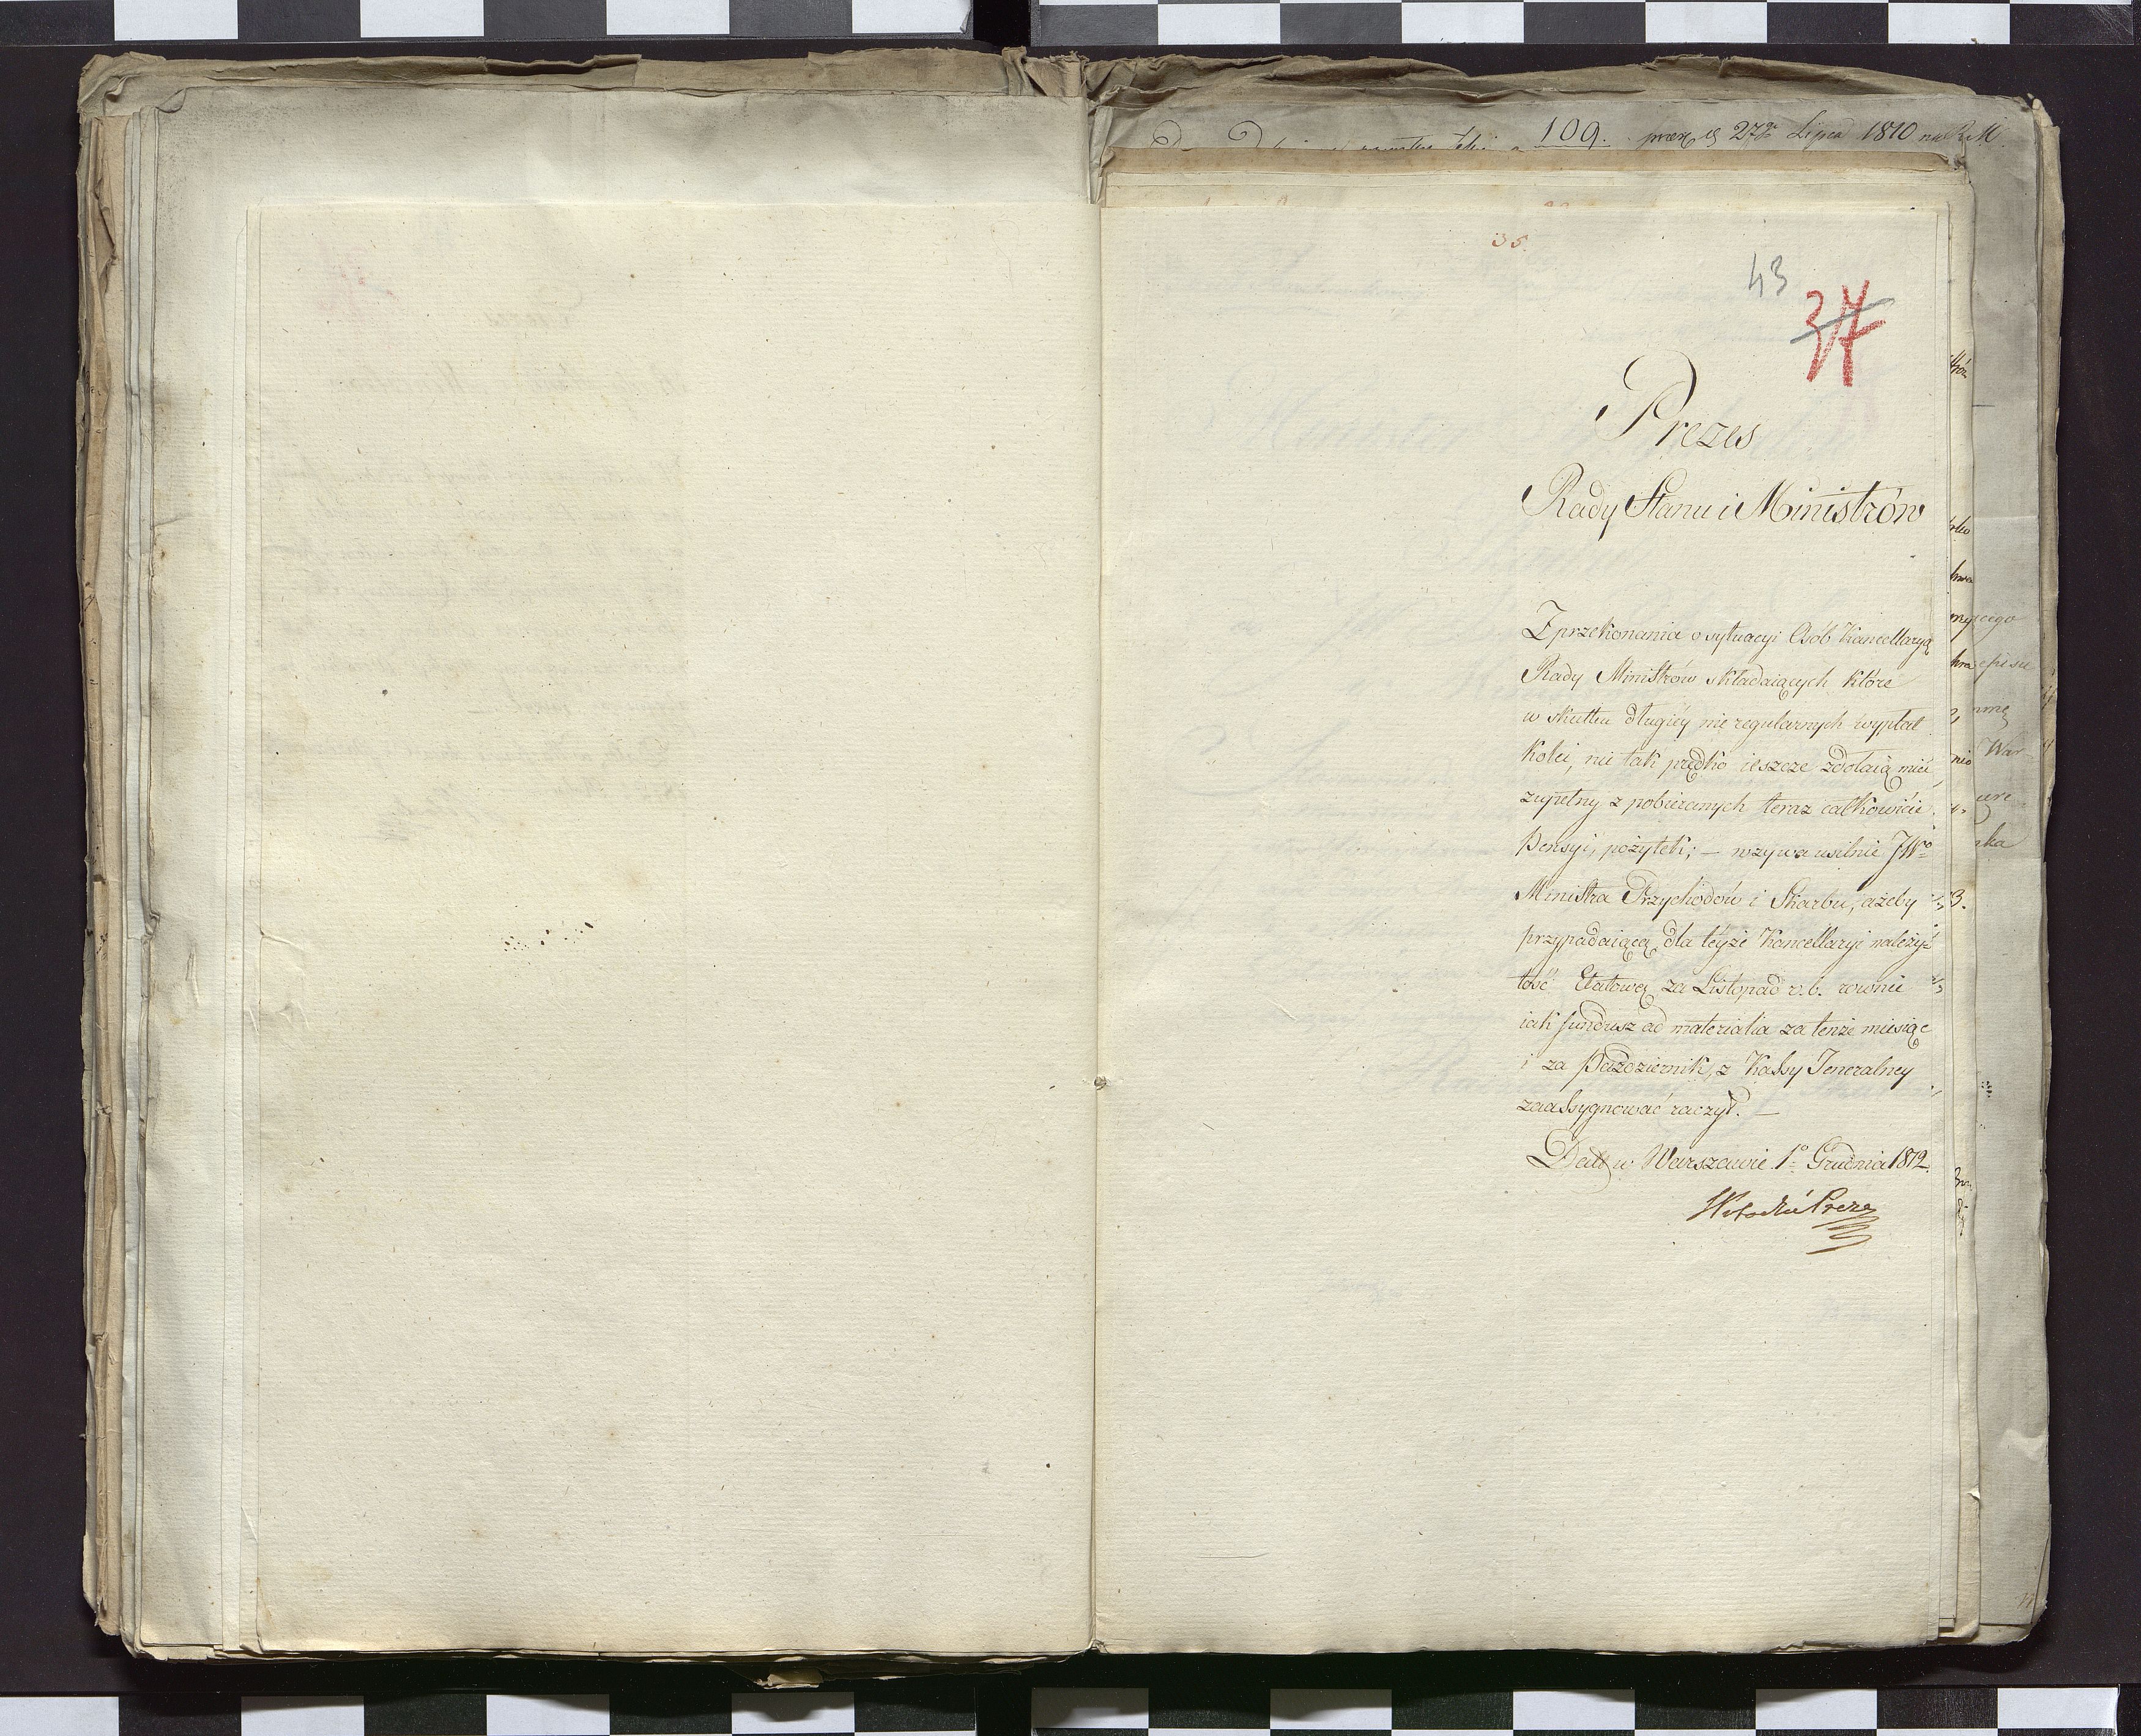 109. 27go Lipca 1810
35.
43
37
Prezes
Rady Stanu i Ministrów
Z przekonania o sytuacyi Osób Kancellaryą
Rady Ministrów składaiących które
w skutku długiéy nie regularnych wypłat
kolei, nie tak prędko ieszcze zdołaią mieć
zupełny z pobieranych teraz całkowicie
Pensyi, pożytek; — wzywa usilnie JWo
Ministra Przychodów i Skarbu, ażeby
przypadaiącą dla téyże Kancellaryi należy-
tość Etatową za Listopad r. b. rownie
iak fundusz ad materialia za tenże miesiąc
i za Pazdziernik, z Kassy Jeneralney
zaassygnować raczył. —
Datt w Warszawie 1o Grudnia 1812.
Preze